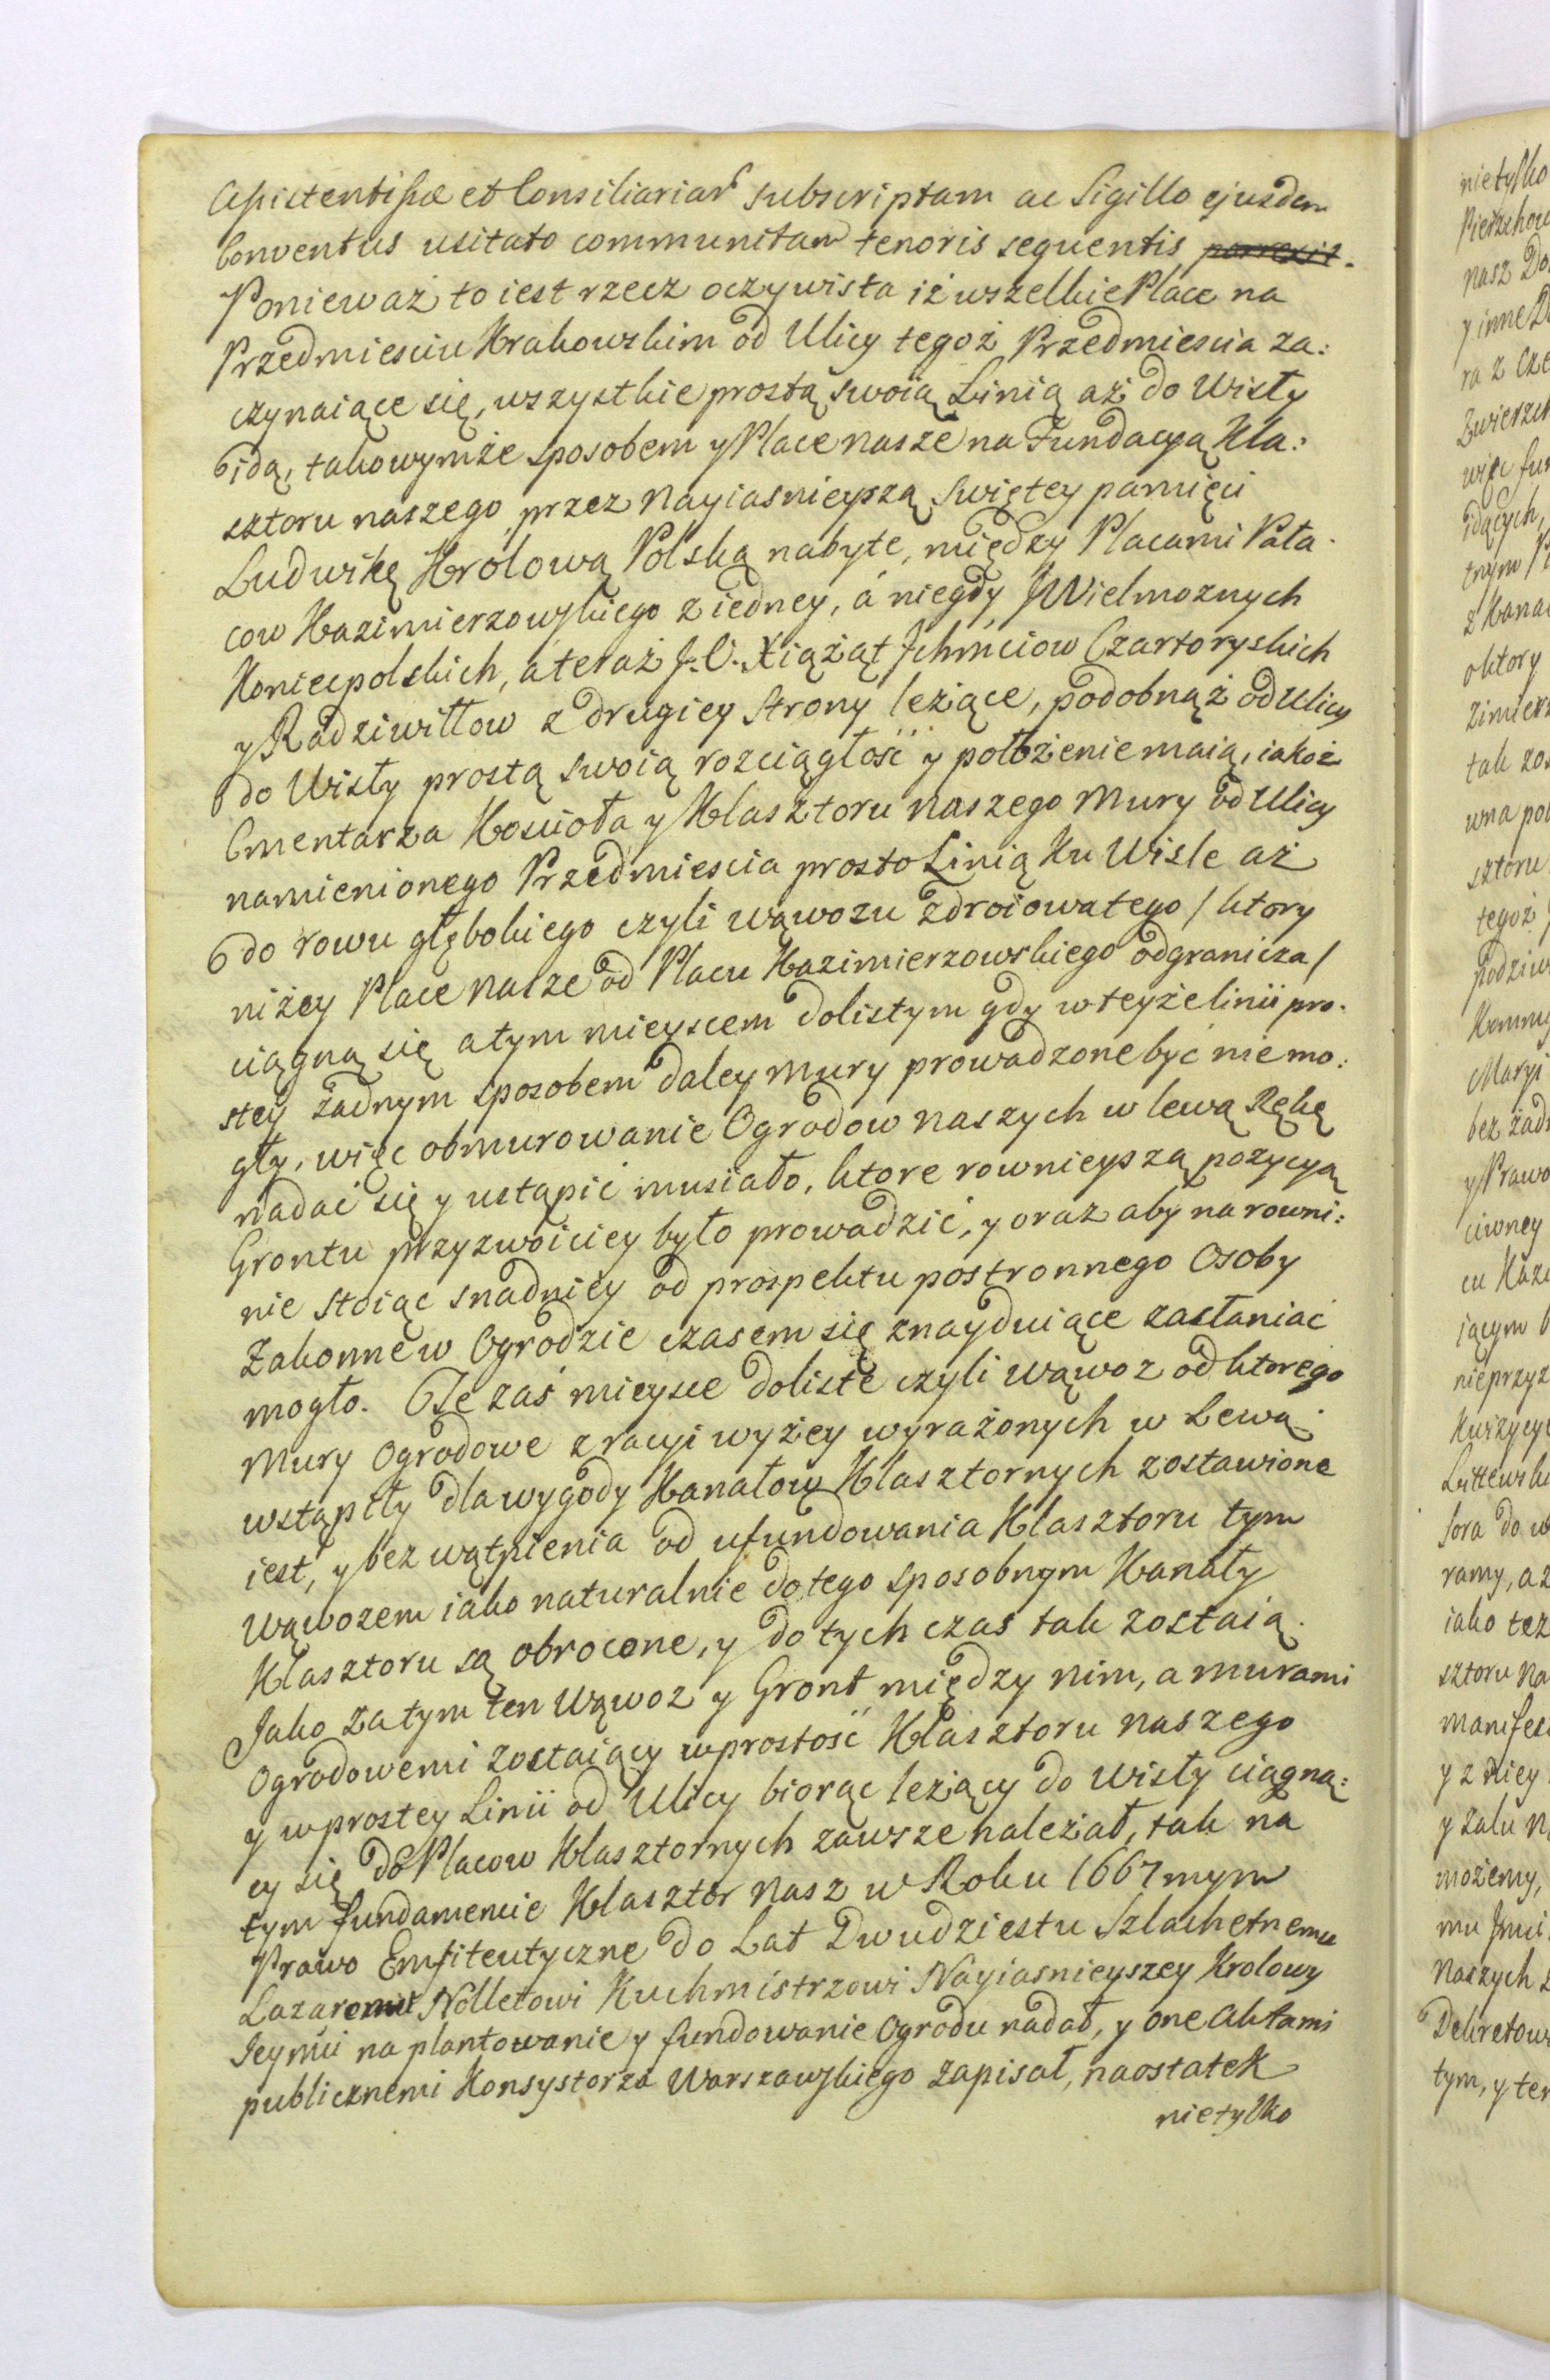 Assistentissæ et Consiliariar subscriptam ac Sigillo ejusdem
Conventus usitato communitam tenoris sequentis porrexit.
Ponieważ to iest rzecz oczywista iż wszelkie Place na
Przedmiesciu Krakowskim od Ulicy tegoż Przedmiescia za:
czynaiące się, wszystkie prostą swoią Linią aż do Wisły
idą, takowymże sposobem y Place nasze na Fundacyą Kla:
sztoru naszego przez Nayiasnieyszą Swiętey pamięci
Ludwikę Krolową Polską nabyte, między Placami Pała
cow Kazimierzowskiego z iedney, á niegdy JWielmoznych
Koniecpolskich, a teraż J. O. Xiążąt Jchmciow Czartoryskich
y Radziwiłłow z drugiey strony leżące, podobnąż od Ulicy
do Wisły prostą swoią rozciągłość y połozenie maią, iakoż
Cmentarza Koscioła y Klasztoru naszego Mury od Ulicy
namienionego Przedmiescia prosto Linią Ku Wisle aż
do rowu głębokiego czyli wąwozu zdroiowatego / ktory
niżey Place nasze od Placu Kazimierzowskiego odgranicza /
ciągną się a tym mieyscem dolistym gdy w teyże linii pro.
stey żadnym sposobem daley mury prowadzone być nie mo:
gły, więc obmurowanie Ogrodow naszych w lewą Rękę
nadać się y ustąpić musiało, ktore rownieyszą pozycyą
Grontu przyzwoiciey było prowadzić, y oraz aby na rowni:
nie stoiąc snadniey od prospektu postronnego Osoby
Zakonne w Ogrodzie czasem się znayduiące zasłaniać
mogło. Te zaś mieysce doliste czyli wąwoz od ktorego
Mury Ogrodowe z racyi wyżey wyrażonych w Lewą
wstąpiły dla wygody Kanałow Klasztornych zostawione
iest, y bez wątpienia od ufundowania Klasztoru tym
Wąwozem iako naturalnie do tego sposobnym Kanały
Klasztoru są obrocone, y do tych czas tak zostaią.
Jako zatym ten Wąwoz y Gront między nim, a murami
Ogrodowemi zostaiący wprostość Klasztoru naszego
y w prostey Linii od Ulicy biorąc leżący do Wisły ciągną:
cy się do Placow Klasztornych zawsze należał, tak na
tym fundamencie Klasztor nasz w Roku 1667mym
Prawo Emfiteutyczne do Lat Dwudziestu Szlachetnemu
Lazaremu Nolletowi Kuchmistrzowi Nayiasnieyszey Krolowy
Jeymci na plantowanie y fundowanie Ogrodu nadał, y one Aktami
publicznemi Konsystorza Warszawskiego zapisał, naostatek
nietylko